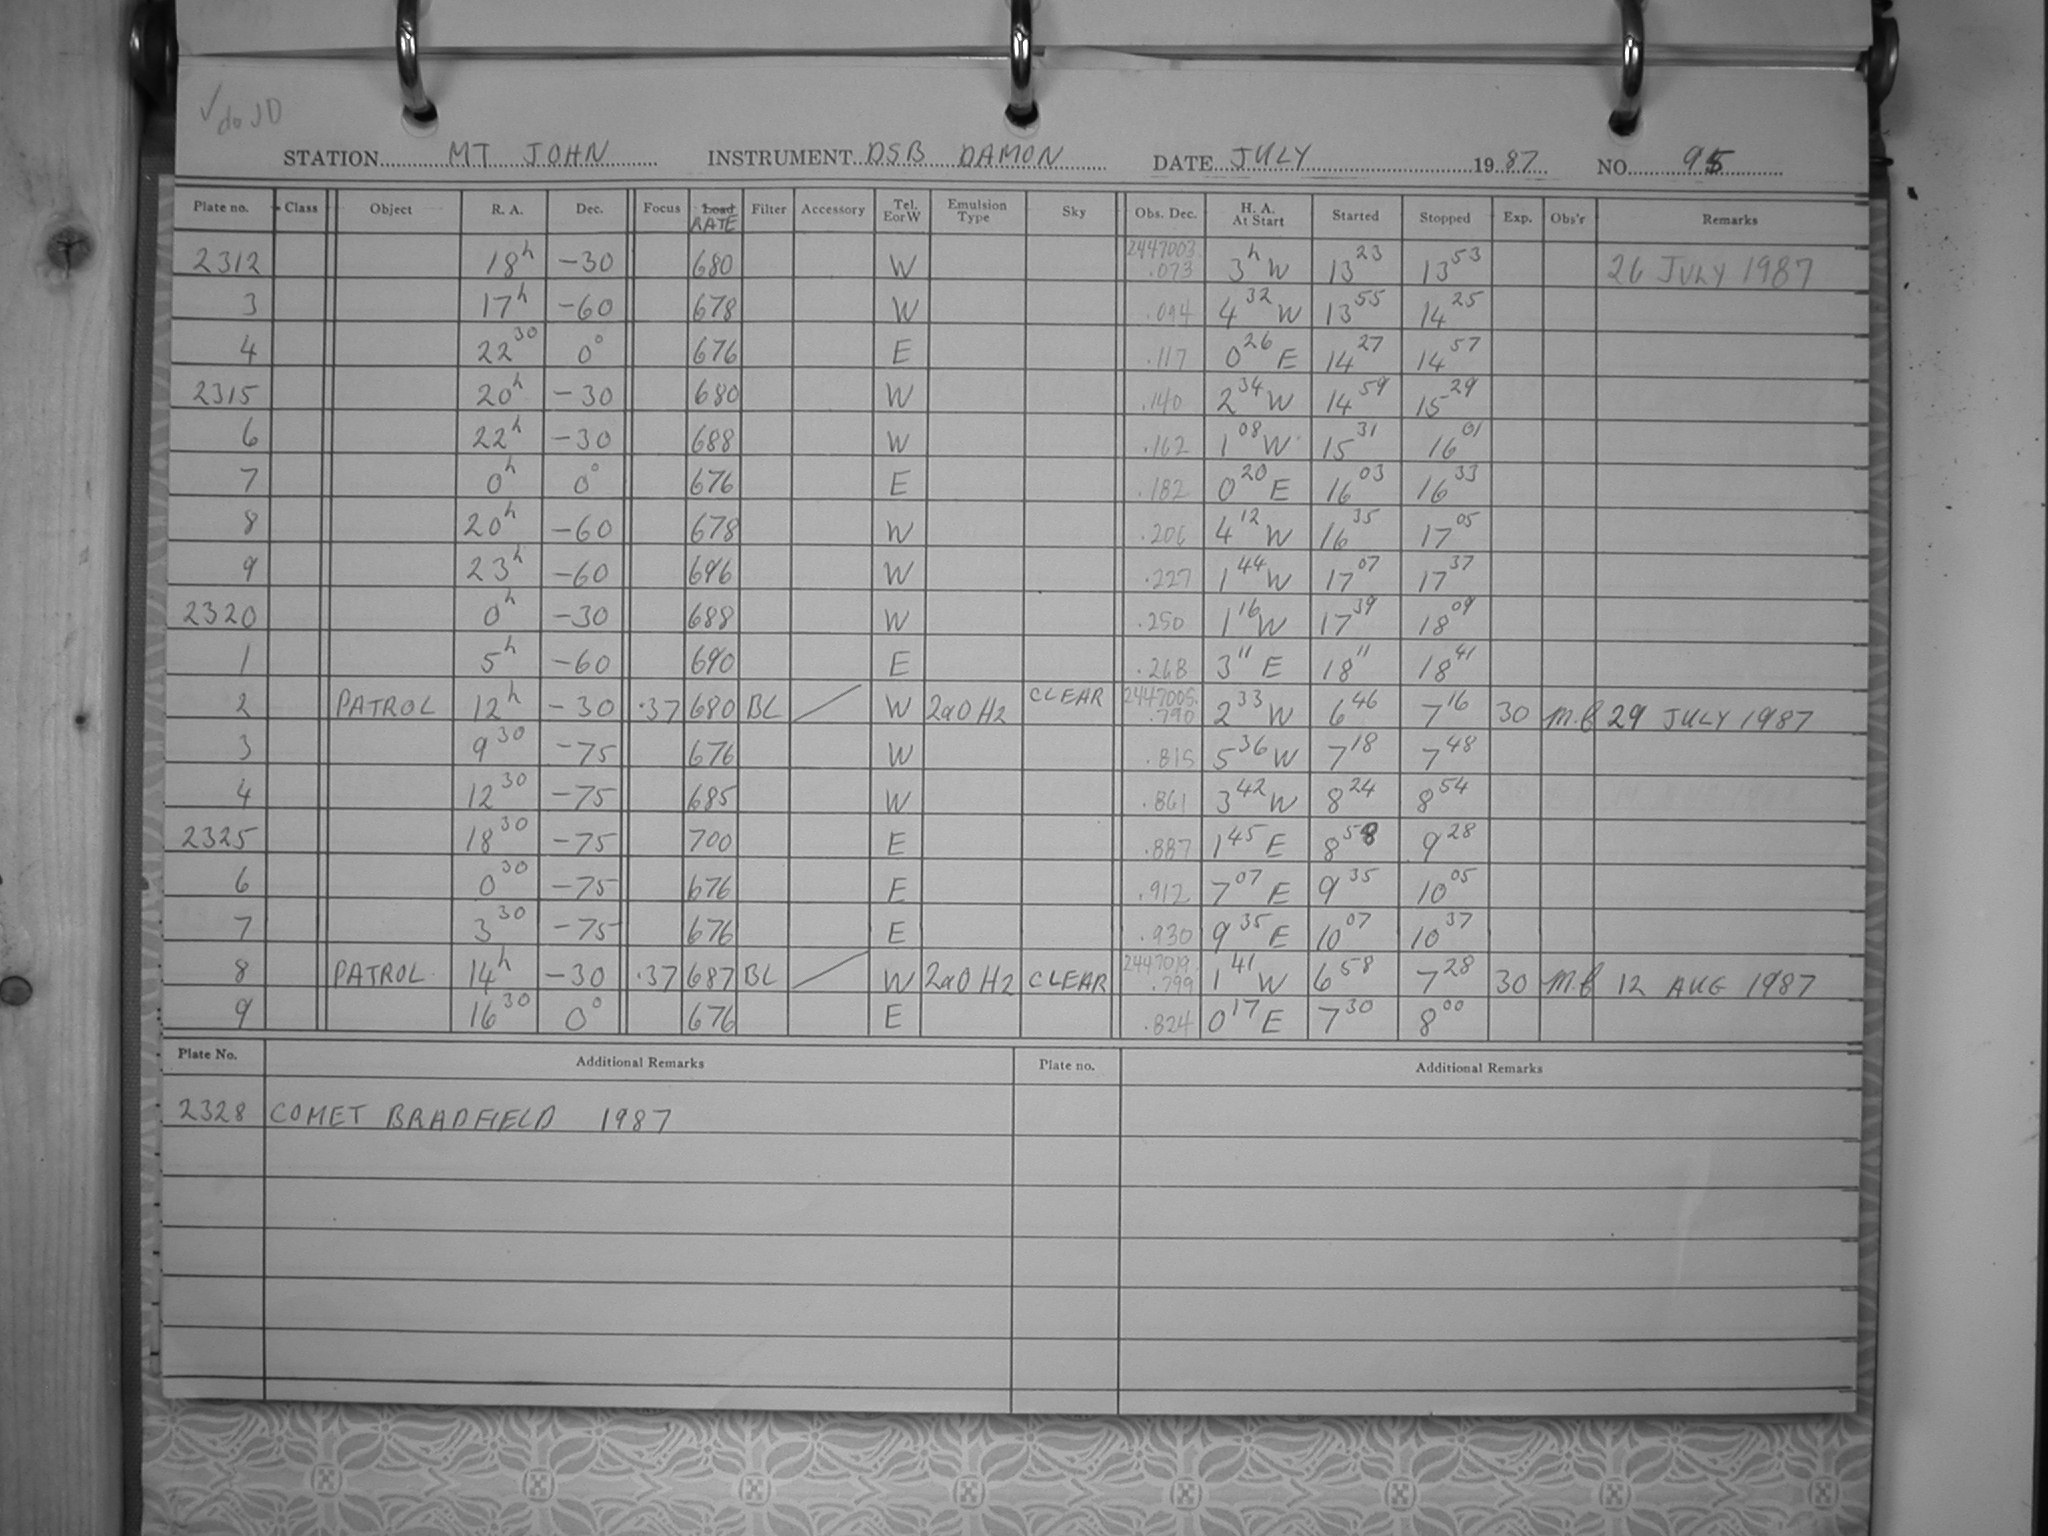 ✓ do JD
STATION MT JOHN INSTRUMENT DSB DAMON DATE JULY 1987 NO. 95
Plate no. Class Object R. A. Dec. Focus Load RATE Filter Accessory Tel. E or W. Emulsion Type Sky Obs. Dec. H. A. At Start Started Stopped Exp. Obs'r Remarks
2312 18h -30 680 W 2447003 .073 3h W 13 23 13 53 26 JULY 1987
3 17h -60 678 W .094 4 32 W 13 55 14 25
4 22 30 0° 676 E .117 0 26 E 14 27 14 57
2315 20h -30 680 W .140 2 34 W 14 59 15 29
6 22h -30 688 W .162 1 08 W 15 31 16 01
7 0h 0° 676 E .182 0 20 E 16 03 16 33
8 20h -60 678 W .206 4 12 W 16 35 17 05
9 23h -60 696 W .227 1 44 W 17 07 17 37
2320 0h -30 688 W .250 1 16 W 17 39 18 09
1 5h -60 690 E .268 3 11 E 18 11 18 41
2 PATROL 12h -30 .37 680 BL W 2aO H2 CLEAR 2447005. .790 2 33 W 6 46 7 16 30 29 JULY 1987
3 9 30 -75 676 W .815 5 36 W 7 18 7 48
4 12 30 -75 685 W .861 3 42 W 8 24 8 54
2325 18 30 -75 700 E .887 1 45 E 8 58 9 28
6 0 30 -75 676 E .912 7 07 E 9 35 10 05
7 3 30 -75 676 E .930 9 35 E 10 07 10 37
8 PATROL 14h -30 .37 687 BL W 2aO H2 CLEAR 2447019. .799 1 41 W 6 58 7 28 30 12 AUG 1987
9 16 30 0° 676 E .824 0 17 E 7 30 8 00
Plate No. Additional Remarks Plate no. Additional Remarks
2328 COMET BRADFIELD 1987